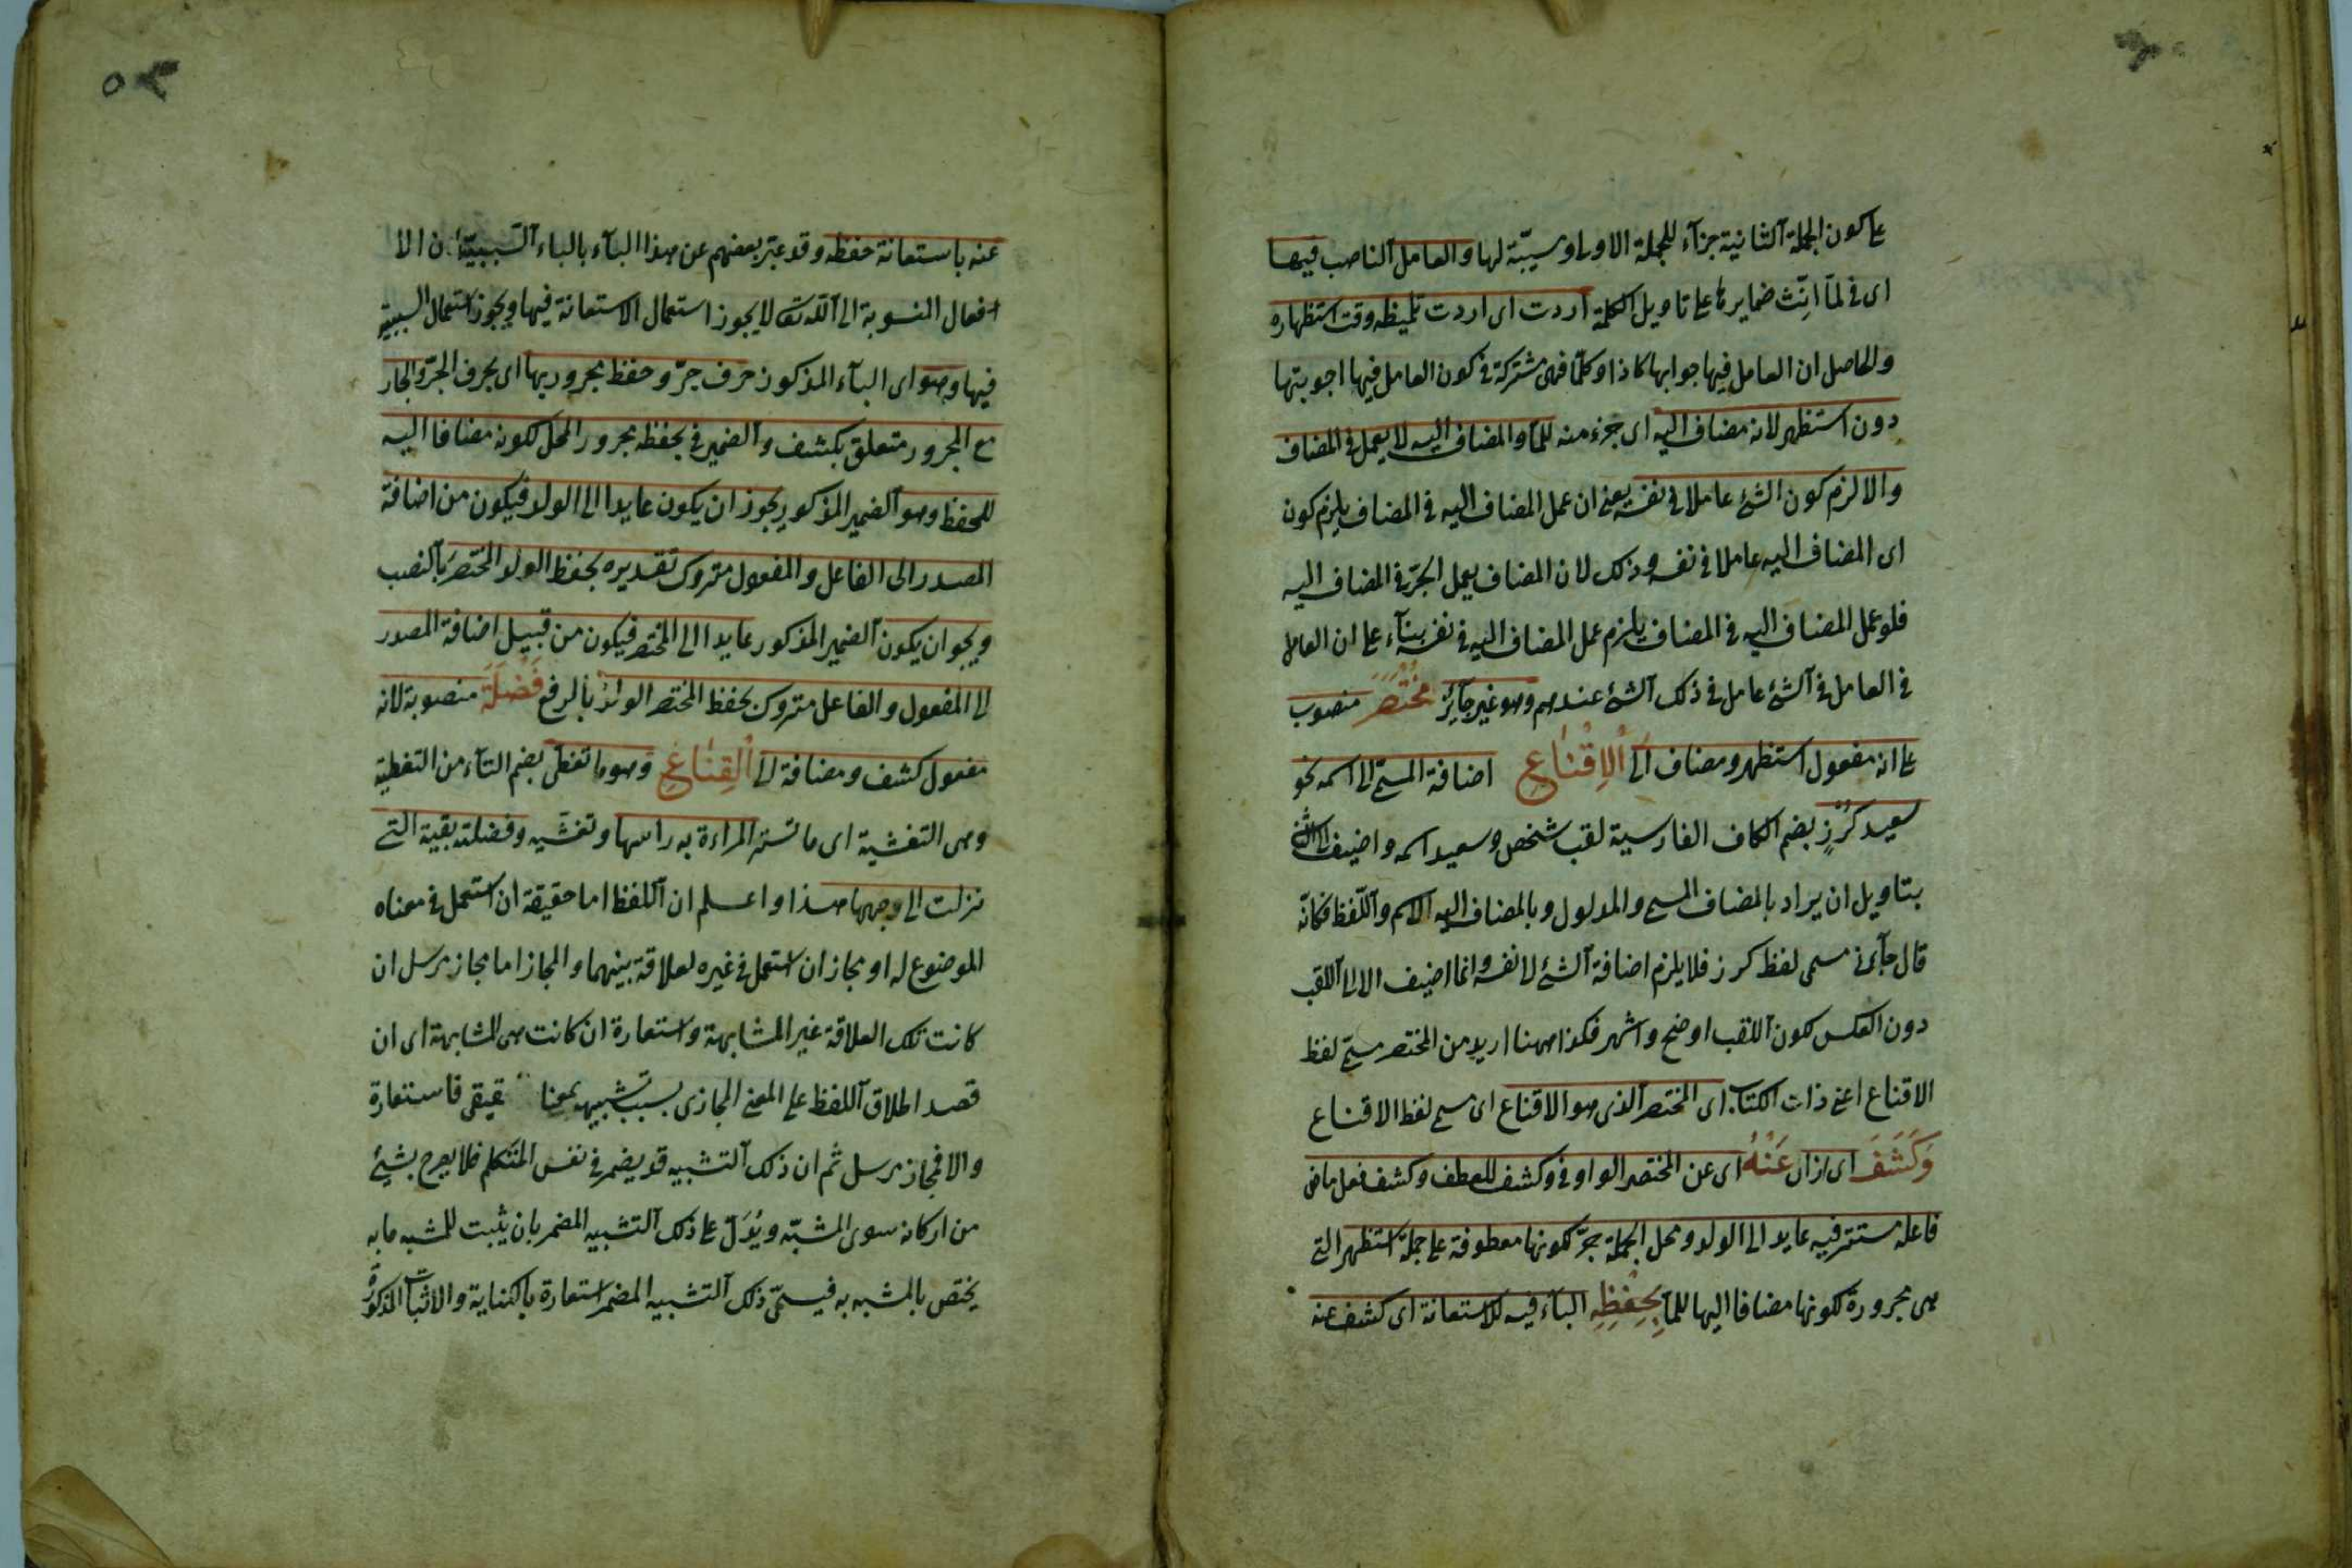 على كون الجملة الثانية جزآء للجملة الاولى او سببيّة لها والعامل الناصب فيها
اى فى لمّا انّث ضمايرها على تاويل الكلمة اردت اى اردت تلميظه وقت استظهاره
والحاصل ان العامل فيها جوابها كاذا وكلما فهى مشتركة فى كون العامل فيها اجوبتها
دون استظهر لانه مضاف اليه اى جزء منه للمّا والمضاف اليه لا يعمل فى المضاف
والا لزم كون الشئ عاملا فى نفسه يعنى ان عمل المضاف اليه فى المضاف يلزم كون
اى المضاف اليه عاملا فى نفسه وذلك لان المضاف يعمل الجرّ فى المضاف اليه
فلو عمل المضاف اليه فى المضاف يلزم عمل المضاف اليه فى نفسه بنآء على ان العامل
فى العامل فى الشئ عامل فى ذلك الشئ عندهم وهو غير جآئز مُخْتَصَرَ منصوب
على انه مفعول استظهر ومضاف الى الْاِقْنَاعِ اضافة المسمّى الى اسمه نحو
سعيد كُرْزٍ بضم الكاف الفارسية لقب شخص وسعيد اسمه واضيف الى
بتاويل ان يراد بالمضاف المسمى والمدلول وبالمضاف اليه الاسم واللّفظ فكانّه
قال جآئنى مسمى لفظ كرز فلا يلزم اضافة الشئ الى نفسه وانما اضيف الى اللقب
دون العكس لكون اللقب اوضح واشهر فكذا ههنا اريد من المختصر مسمّى لفظ
الاقناع اعنى ذات الكتاب اى المختصر الذى هو الاقناع اى مسمى لفظ الاقناع
وَكَشَفَ اى ازال عَنْهُ اى عن المختصر الواو فى وكشف للعطف وكشف فعل ماض
فاعله مستتر فيه عايد الى الولد ومحل الجملة جرّ لكونها معطوفة على جملة استظهر التى
هى مجرورة لكونها مضافا اليها للمّا بِحِفْظِهِ البآء فيه للاستعانة اى كشف عنه
عنه باستعانة حفظه وقد عبّر بعضهم عن هذا البآء بالباء السّببيّة لان الا
افعال المنسوبة الى اللّه تعالى لا يجوز استعمال الاستعانة فيها ويجوز استعمال السببية
فيها وهو اى البآء المذكور حرف جرّ وحفظ مجرور بها اى بحرف الجرّ والجار
مع المجرور متعلق بكشف والضمير فى بحفظه مجرور المحل لكونه مضافا اليه
للحفظ وهو الضمير المذكور يجوز ان يكون عايدا الى الولد فيكون من اضافة
المصدر الى الفاعل والمفعول متروك تقديره بحفظ الولد المختصرَ بالنصب
ويجو ان يكون الضمير المذكور عايدا الى المختصر فيكون من قبيل اضافة المصدر
الى المفعول والفاعل متروك بحفظ المختصر الولدُ بالرفع فَضْلَةَ منصوبة لانه
مفعول كشف ومضافة الى الْقِنَاعِ وهو ما تغطى بضم التآء من التغطية
وهى التغشية اى ما تستر المراءة به راسها وتغشّيه وفضلته بقية التى
نزلت الى وجهها هذا واعلم ان اللفظ اما حقيقة ان استعمل فى معناه
الموضوع له او مجاز ان استعمل فى غيره لعلاقة بينهما والمجاز اما مجاز مرسل ان
كانت تلك العلاقة غير المشابهة واستعارة ان كانت هى المشابهة اى ان
قصد اطلاق اللفظ على المعنى المجازى بسبب تشبيهه بمعنا قيقى فاستعارة
والا فمجاز مرسل ثم ان ذلك التشبيه قد يضمر فى نفس المتكلم فلا يصرح بشئ
من اركانه سوى المشبّه ويُدَلّ على ذلك التشبيه المضمر بان يثبت للمشبه ما به
يختص بالمشبه به فيسمّى ذلك التشبيه المضمر استعارة بالكناية والاثبات المذكورة